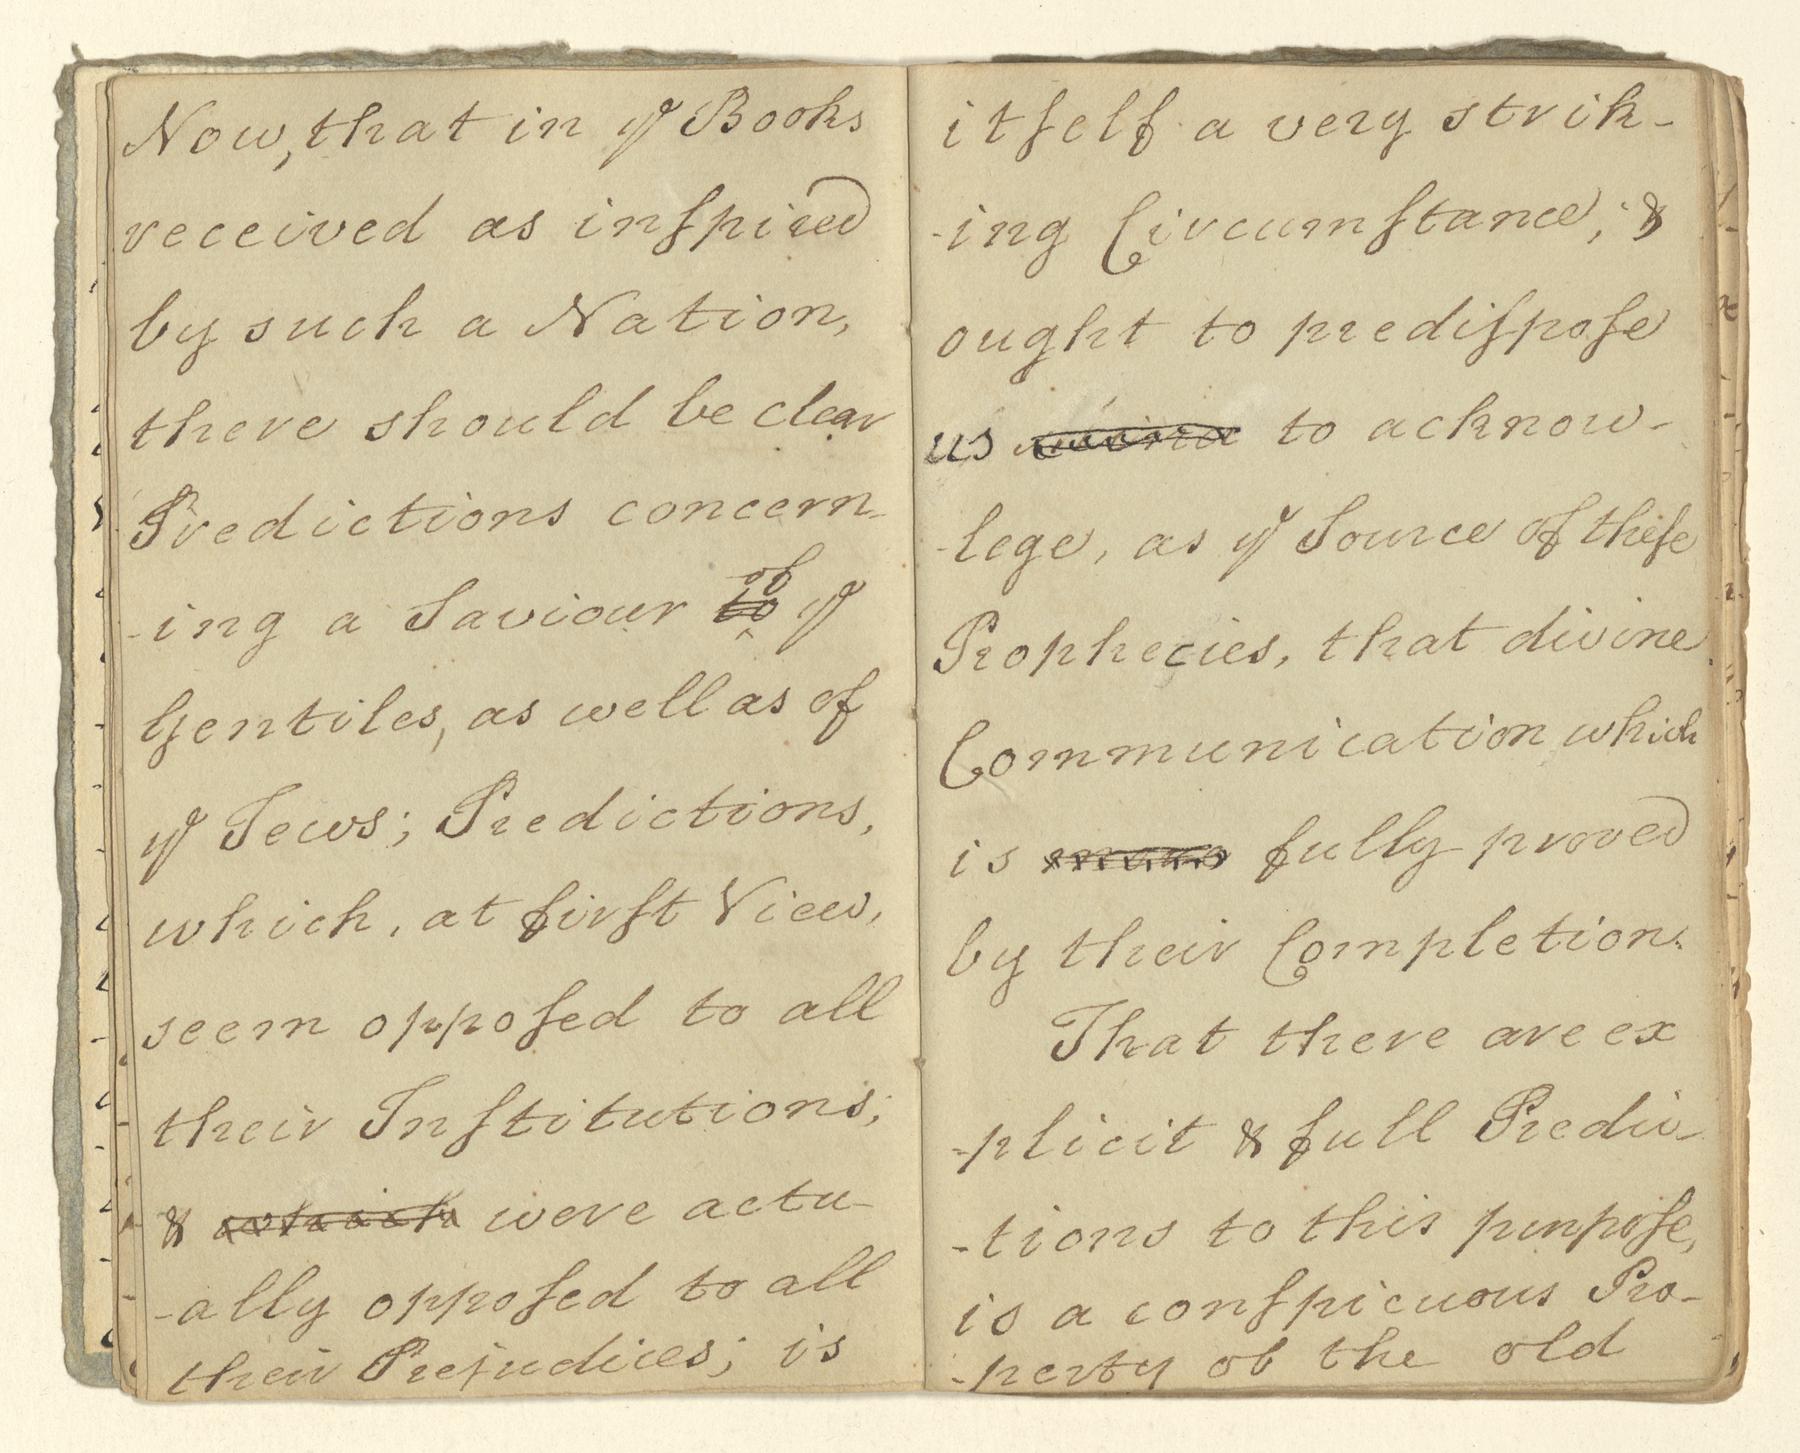 Now, that in yᵉ Books
received as inſpired
by such a Nation,
there should be clear
Predictions concern-
-ing a Saviour of yᵉ
Gentiles, as well as of
yᵉ Jews; Predictions,
which, at firſt View,
seem oppoſed to all
their Inſtitutions;
& which were actu-
-ally oppoſed to all
their Prejudices; is
itſelf a very strik-
-ing Circumſtance; &
ought to prediſpoſe
us to acknow-
-lege, as yᵉ Source of theſe
Prophecies, that divine
Communication which
is fully proved
by their Completion.
That there are ex
-plicit & full Predic-
-tions to this purpoſe,
is a conſpicuous Pro-
-perty of the old